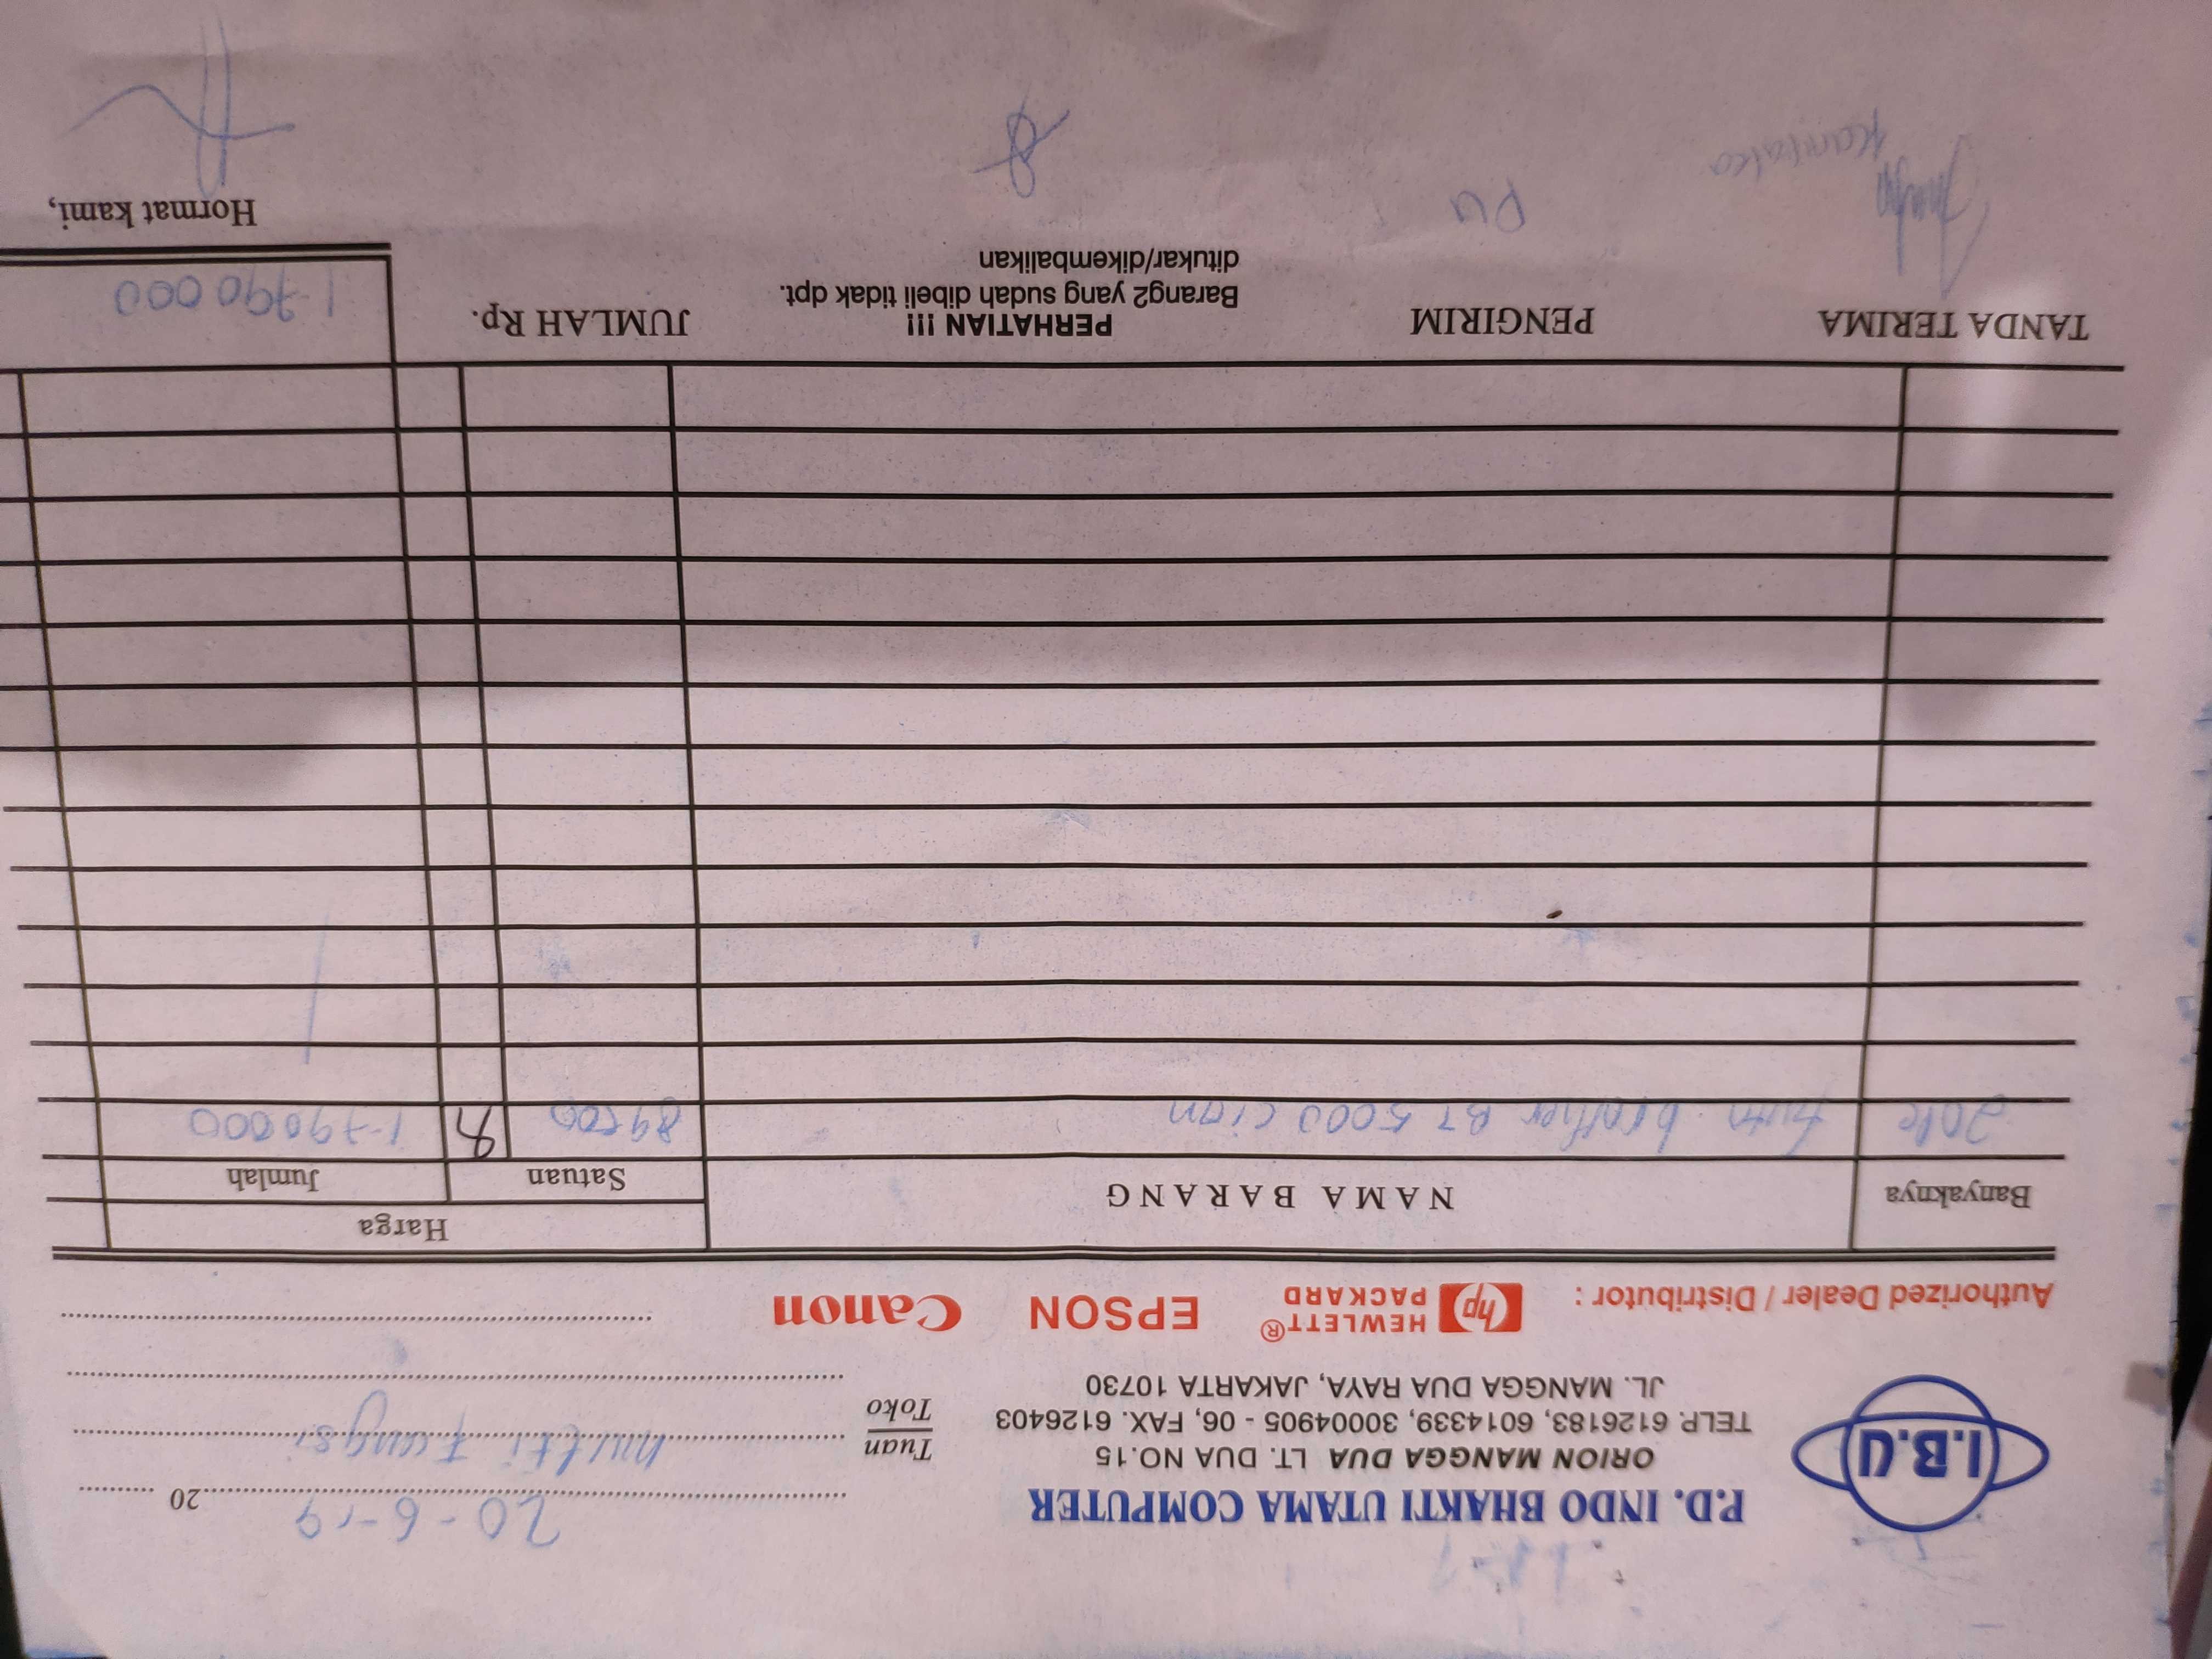 I.B.U
P.D. INDO BHAKTI UTAMA COMPUTER
ORION MANGGA DUA LT. DUA NO.15
TELP. 6126183, 6014339, 30004905 - 06, FAX. 6126403
JL. MANGGA DUA RAYA, JAKARTA 10730
Authorized Dealer / Distributor : hp HEWLETT® PACKARD EPSON Canon
20-6-19 20
Tuan multi Fungsi
Toko
Banyaknya NAMA BARANG Harga
Satuan Jumlah
20pc brother BT 5000 cian 89500 1.790000
TANDA TERIMA PENGIRIM PERHATIAN !!! JUMLAH Rp. 1.790 000
Barang2 yang sudah dibeli tidak dpt.
ditukar/dikembalikan
Hormat kami,
PU